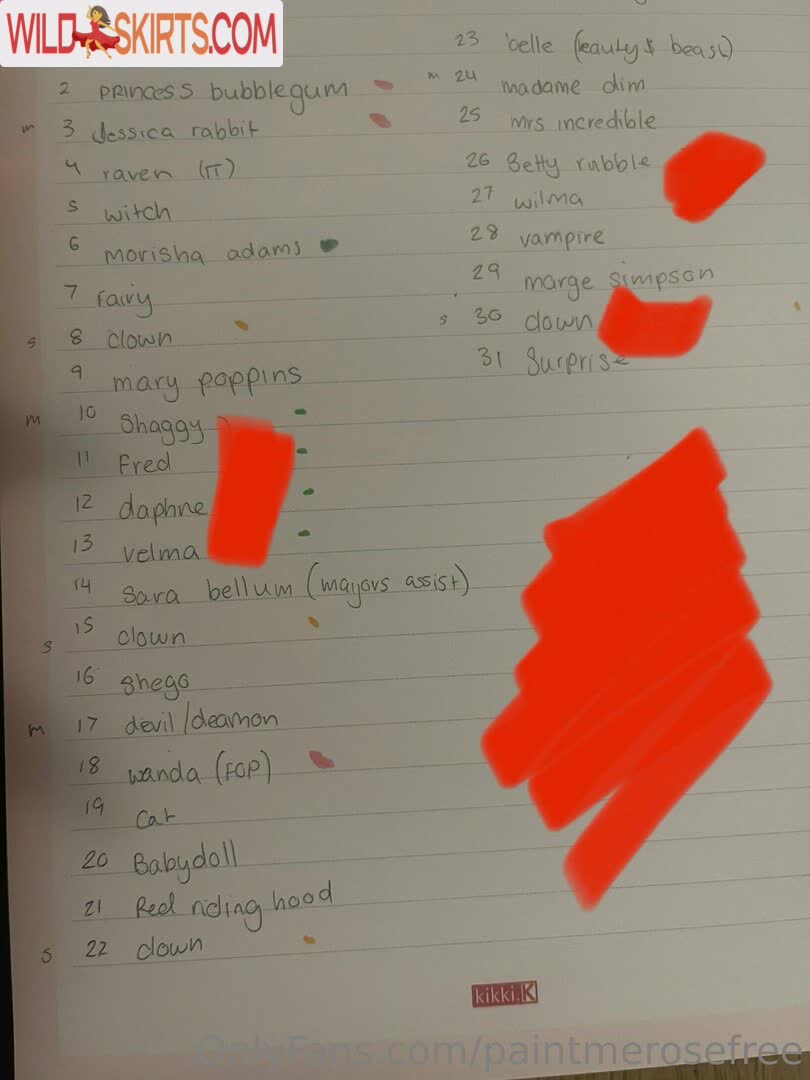 WILD SKIRTS.COM
2 PRINCESS bubblegum
m 3 Jessica rabbit
4 raven (π)
5 witch
6 morisha adams
7 Fairy
s 8 clown
9 mary poppins
m 10 Shaggy
11 Fred
12 daphne
13 velma
14 Sara bellum (mayors assist)
s 15 clown
16 Shego
m 17 devil/deamon
18 wanda (FOP)
19 Cat
20 Babydoll
21 Red riding hood
s 22 clown
23 belle (beauty & beast)
m 24 madame dim
25 mrs incredible
26 Betty rubble
27 wilma
28 vampire
29 marge simpson
s 30 clown
31 Surprise
kikki.K
OnlyFans.com/paintmerosefree